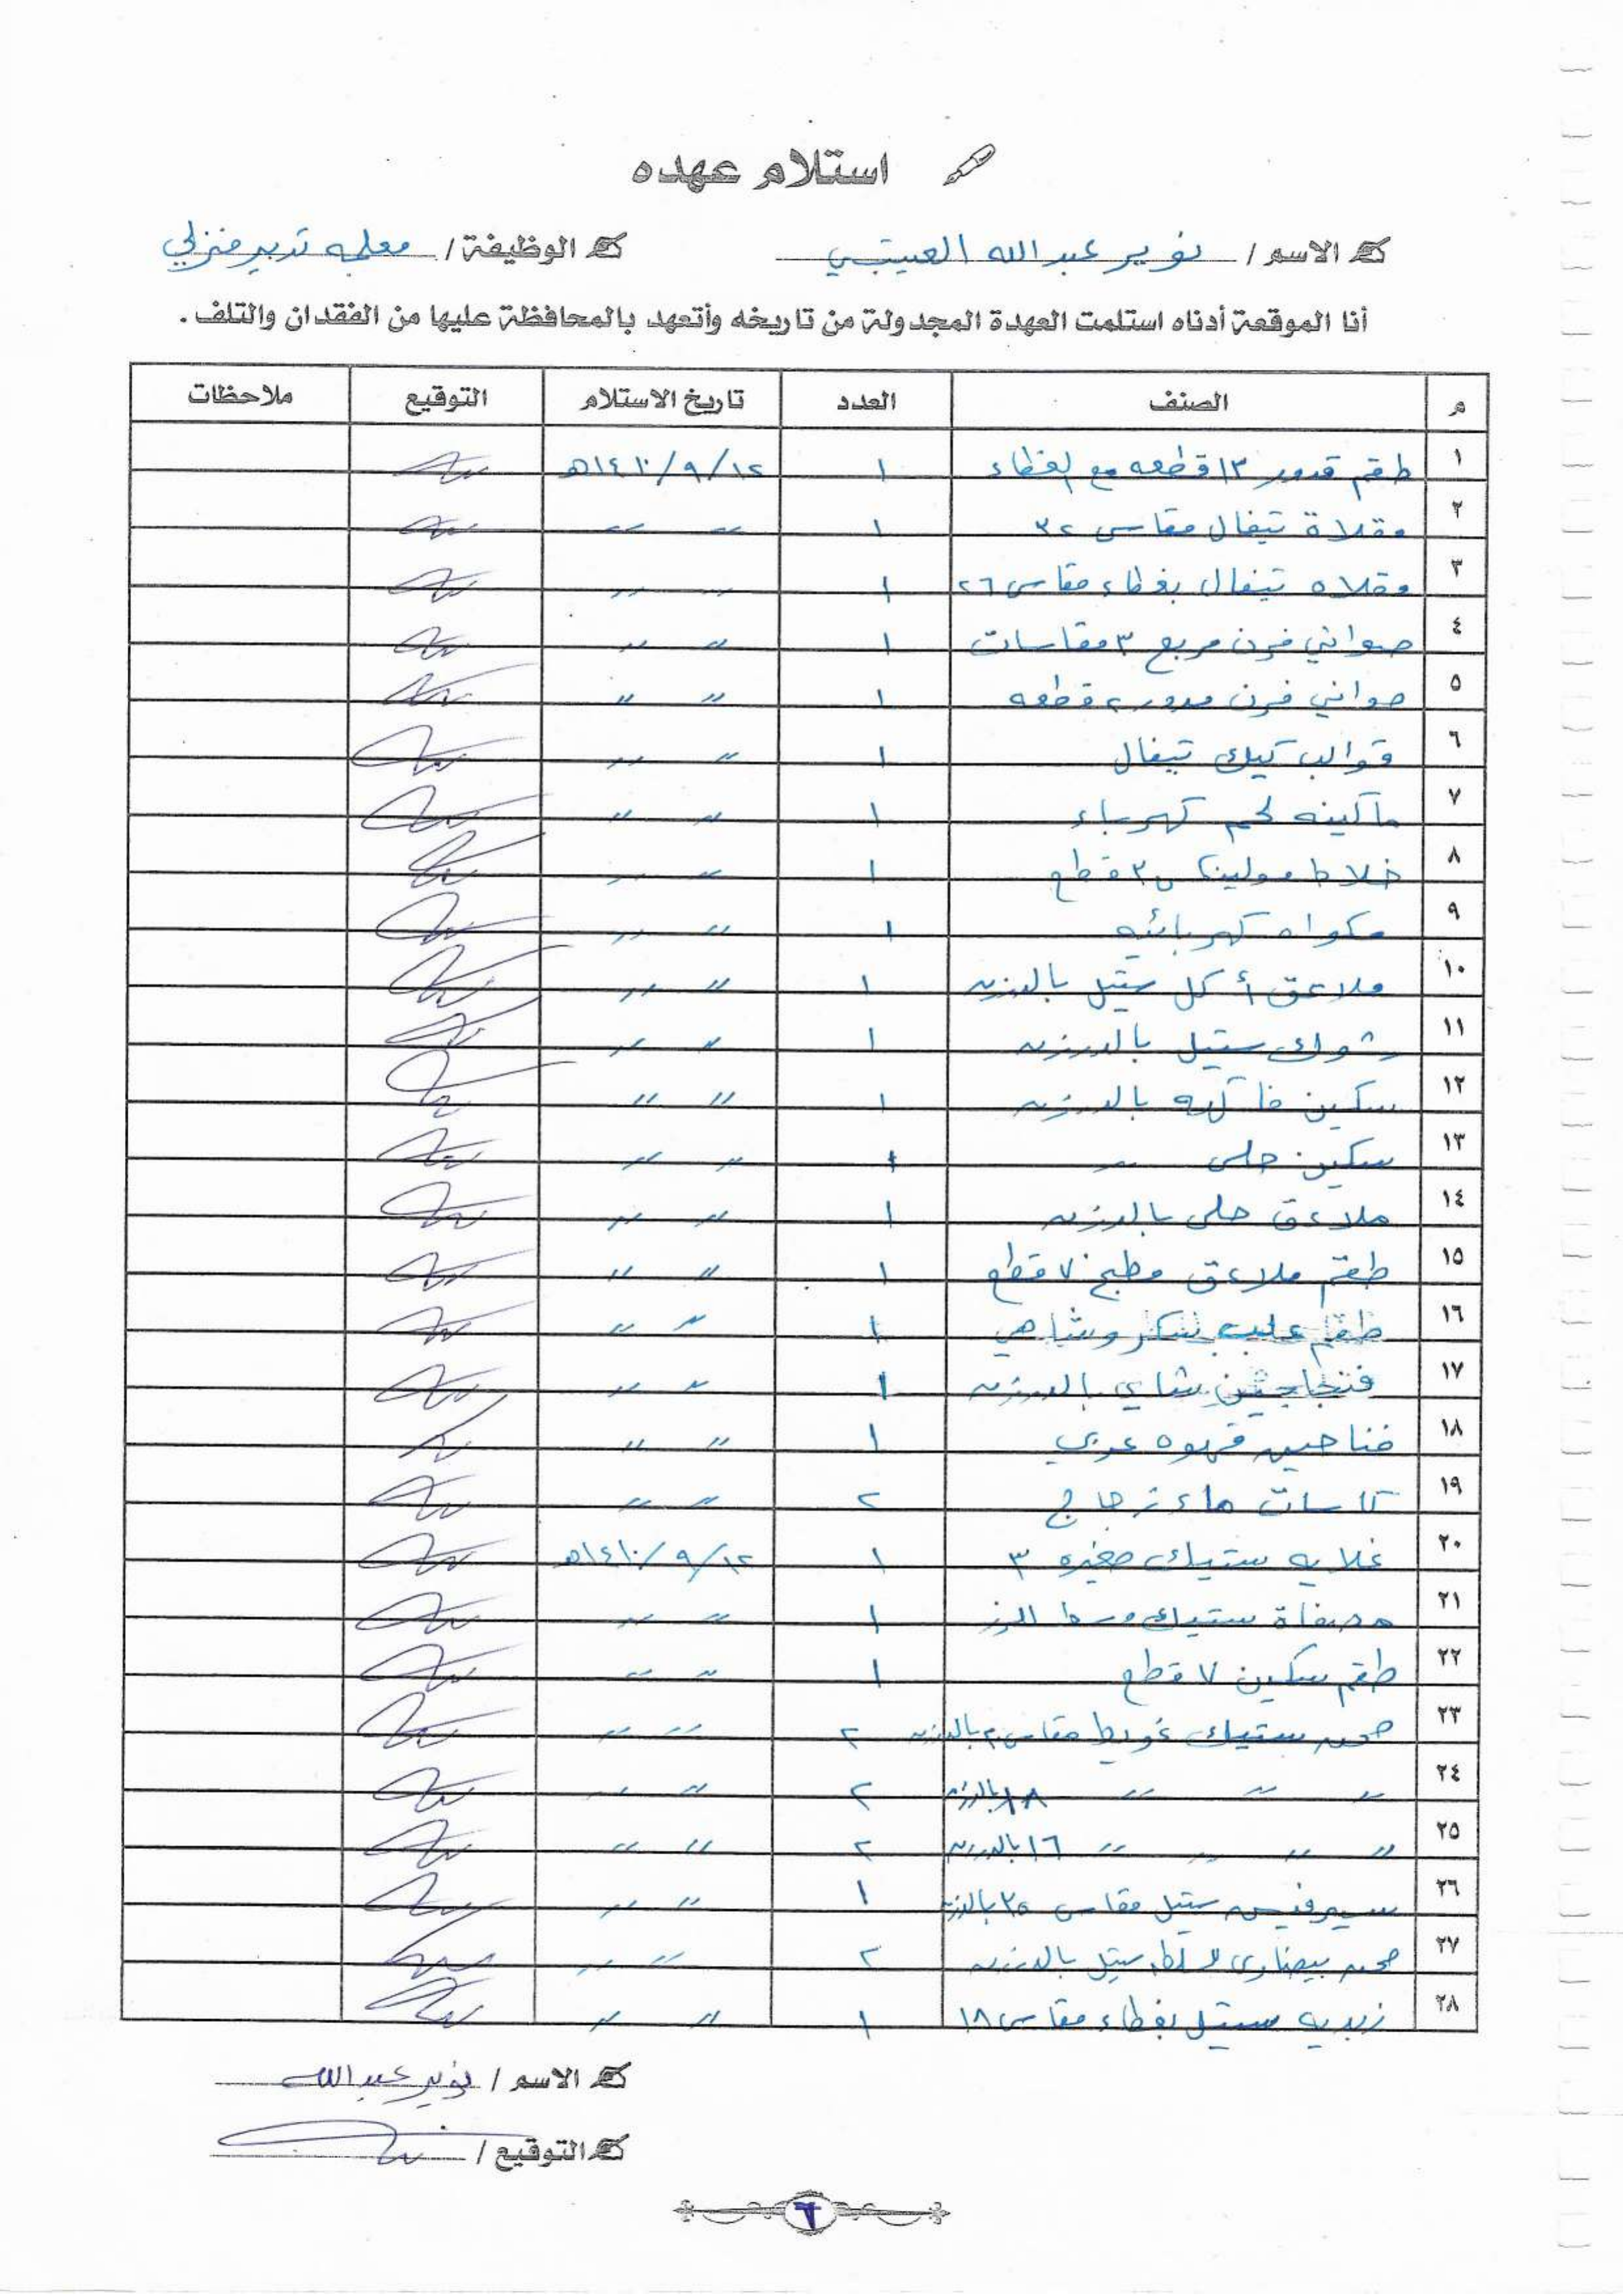 استلام عهده
الاسم / نوير عبدالله العتيبي
الوظيفة / معلمه تدبير منزلي
أنا الموقعة أدناه استلمت العهدة المجدولة من تاريخه وأتعهد بالمحافظة عليها من الفقدان والتلف .
م الصنف العدد تاريخ الاستلام التوقيع ملاحظات
١ طقم قدور ١٣ قطعه مع الغطاء ١
٢ مقلاة تيفال مقاس ٣٢ ١ " "
٣ مقلاه تيفال بغطاء مقاس ٢٦ ١ " "
٤ صواني فرن مربع ٣ مقاسات ١ " "
٥ صواني فرن مدور ٢ قطعه ١ " "
٦ قوالب كيك تيفال ١ " "
٧ ماكينه لحم كهرباء ١ " "
٨ خلاط مولينكس ٣ قطع ١ " "
٩ مكواه كهربائيه ١ " "
١٠ ملاعق أكل ستيل بالدرزن ١ " "
١١ شوك ستيل بالدرزن ١ " "
١٢ سكين فاكهه بالدرزن ١ " "
١٣ سكين حلى " ١ " "
١٤ ملاعق حلى بالدرزن ١ " "
١٥ طقم ملاعق مطبخ ٧ قطع ١ " "
١٦ طقم علب سكر وشاهي ١ " "
١٧ شاي بالدرزن ١ " "
١٨ فناجين قهوه عربي ١ " "
١٩ كاسات ماء زجاج ٢ " "
٢٠ غلايه ستيك صغيره ٣ ١
٢١ مصفاة ستيك وسط الرز ١ " "
٢٢ طقم سكين ٧ قطع ١ " "
٢٣ صحن ستيك غويط مقاس ٢٠ بالدرزن ٢ " "
٢٤ " " " " ١٨ بالدرزن ٢ " "
٢٥ " " " " ١٦ بالدرزن ٢ " "
٢٦ سيرفيس ستيل مقاس ٢٥ بالدرزن ١ " "
٢٧ صحن بيضاوي ستيل بالدرزن ٢ " "
٢٨ زبديه ستيل بغطاء مقاس ١٨ ١ " "
الاسم / نوير عبدالله
التوقيع /
٦